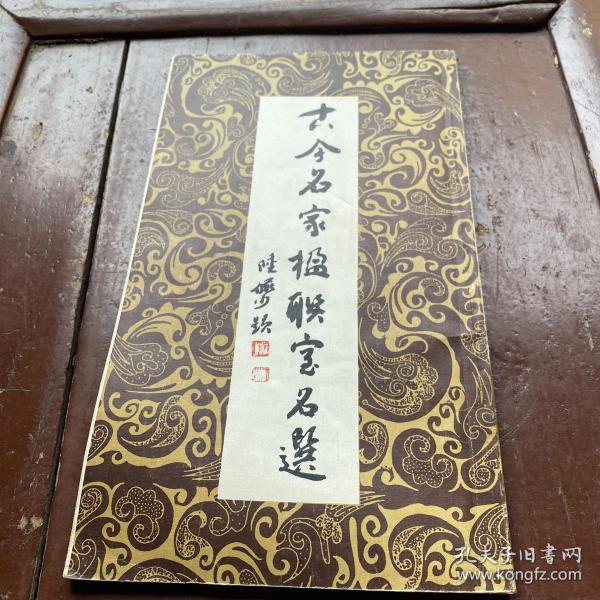 古今名家楹联室名選
陸儼少題
孔夫子旧書网
www.kongfz.com